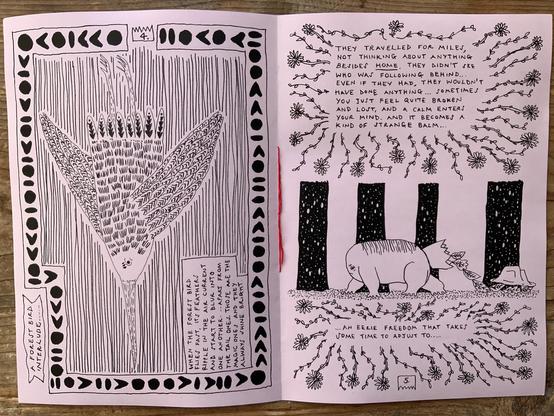 4.
A FOREST BIRD
INTERLUDE.
WHEN THE FOREST BIRD
FLIES FAST, ITS FEATHERS
RIPPLE IN THE AIR CURRENT
AND START TO BLUR INTO
ONE ANOTHER. APART FROM
THE TAIL ONES. THOSE ARE THE
MAGIC ONES AND THEY
ALWAYS SHINE BRIGHT.
THEY TRAVELLED FOR MILES,
NOT THINKING ABOUT ANYTHING
BESIDES HOME. THEY DIDN'T SEE
WHO WAS FOLLOWING BEHIND...
EVEN IF THEY HAD, THEY WOULDN'T
HAVE DONE ANYTHING... SOMETIMES
YOU JUST FEEL QUITE BROKEN
AND LOST, AND A CALM ENTERS
YOUR MIND. AND IT BECOMES A
KIND OF STRANGE BALM...
...AN EERIE FREEDOM THAT TAKES
SOME TIME TO ADJUST TO....
5.